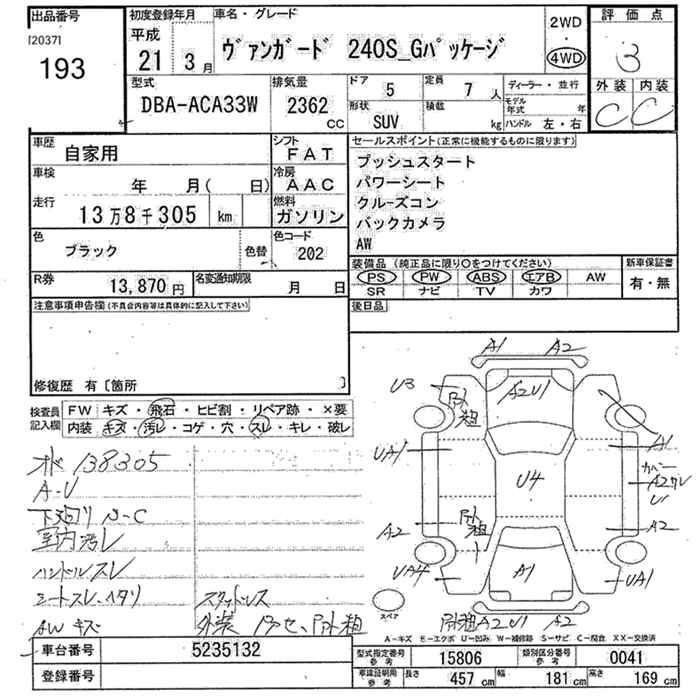 出品番号 初度登録年月 車名・グレード 2WD 評価点
[2037] 平成 ・
193 21 3月 ヴァンガード 240S_Gパッケージ 4WD 3
型式 排気量 ドア 5 定員 7人 ディーラー・並行 外装 内装
DBA-ACA33W 2362 CC 形状 SUV 積載 kg モデル年式 年 C C
ハンドル 左・右
車歴 自家用 シフト FAT セールスポイント(正常に機能するものに限ります)
車検 年 月( 日) 冷房 AAC プッシュスタート
パワーシート
走行 13万8千305 km 燃料 ガソリン クルーズコン
バックカメラ
色 ブラック 色替 色コード 202 AW
装備品 (純正品に限り○をつけてください) 新車保証書
R券 13,870円 名変通知期限 月 日 PS PW ABS エアB AW 有・無
SR ナビ TV カワ
注意事項申告欄(不具合内容等は具体的に記入して下さい) 後日品
修復歴 有〔箇所 〕
検査員記入欄 FW キズ・飛石・ヒビ割・リペア跡・×要
内装 キズ・汚レ・コゲ・穴・スレ・キレ・破レ
A1 A2
U3 A2U1
UA1 U4 A1
カバー A2サレ U1
A2 A2
UA4 A1 UA1
A2U1 A2
138305
A-U
下廻り S-C
室内汚レ
ハンドルスレ
シートスレ、ヘタリ スタッドレス
AWキズ 外装
スペア
A-キズ E-エクボ U-凹み W-補修跡 S-サビ C-腐食 XX-交換済
車台番号 5235132 型式指定番号 参考 15806 類別区分番号 参考 0041
登録番号 車庫証明用 参考 長さ 457 cm 幅 181 cm 高さ 169 cm